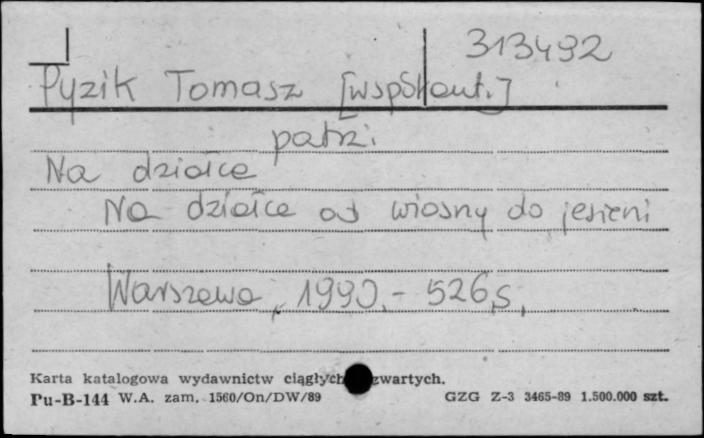 313492
Pyzik Tomasz [współaut.]
patrz:
Na działce
Na działce od wiosny do jesieni
Warszawa, 1990. - 526 s.
Karta katalogowa wydawnictw ciągłych zwartych.
Pu-B-144 W.A. zam. 1560/On/DW/89 GZG Z-3 3465-89 1.500.000 szt.